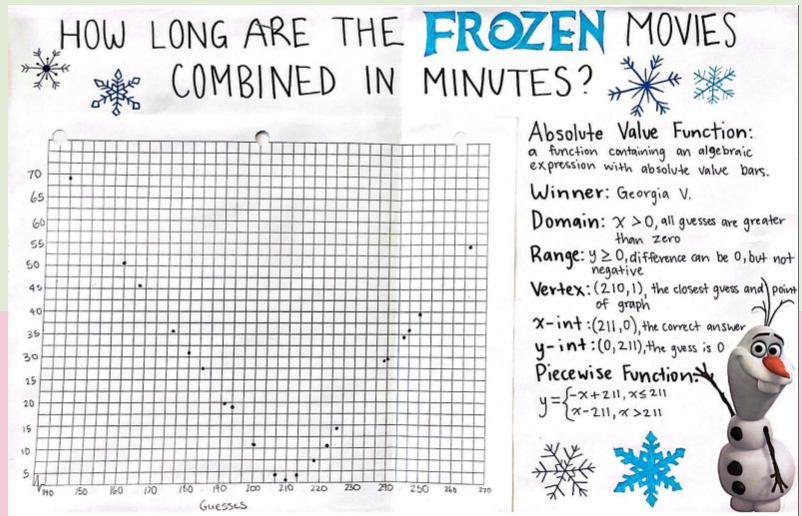 HOW LONG ARE THE FROZEN MOVIES
COMBINED IN MINUTES?
70
65
60
55
50
45
40
35
30
25
20
15
10
5
140 150 160 170 180 190 200 210 220 230 240 250 260 270
Guesses
Absolute Value Function:
a function containing an algebraic
expression with absolute value bars.
Winner: Georgia V.
Domain: x >0, all guesses are greater
than zero
Range: y ≥ 0, difference can be 0, but not
negative
Vertex: (210,1), the closest guess and point
of graph
x-int: (211,0), the correct answer
y-int: (0,211), the guess is 0
Piecewise Function:
y={-x+211, x≤211
{x-211, x>211